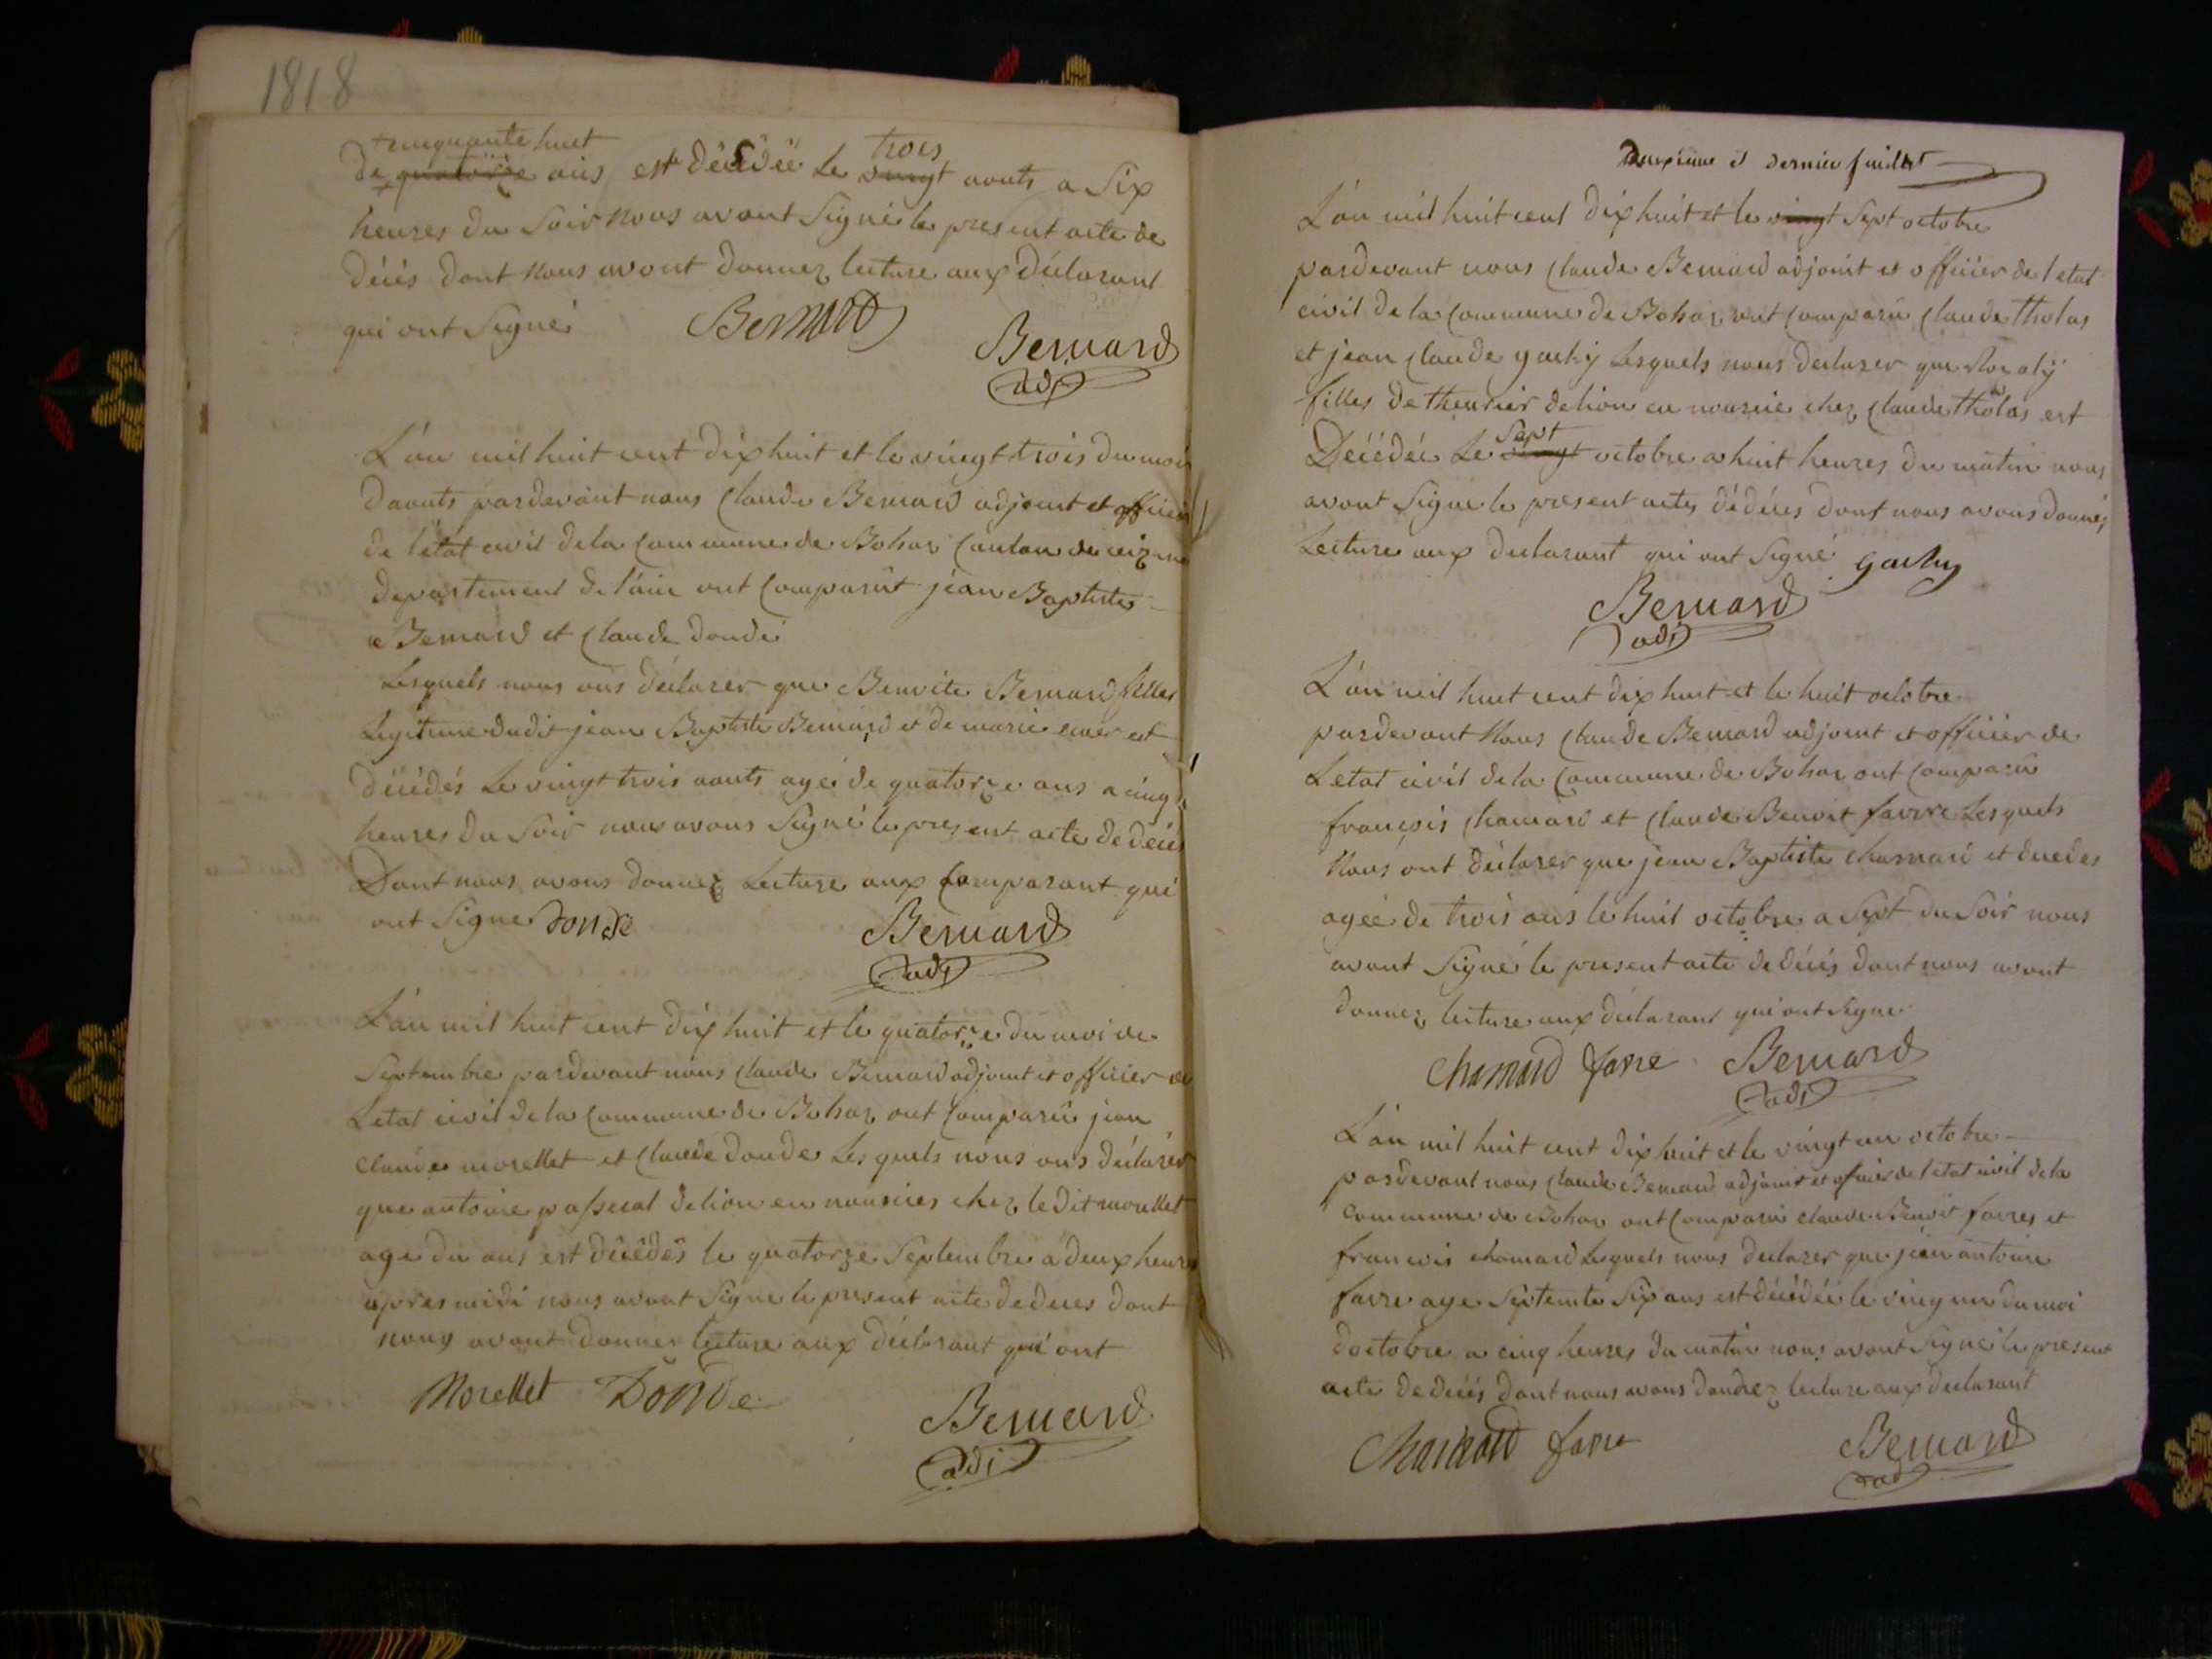 1818
cinquante huit trois
de quatorze ans est décédée le vingt aouts a Six
heures du Soir nous avont Signé le present acte de
décés dont nous avont donnez lecture aux déclarant
qui ont Signé
Bernard
Bernard
adj
L'an mil huit cent dix huit et le vingt trois du moi
daouts pardevant nous Claude Bernard adjoint et officier
de l'état civil de la Commune de Bohaz Canton de
departement de l'ain ont Comparût jean Baptiste
Bernard et Claude Donde
Lesquels nous ons déclarer que Benoite Bernard filles
Legitime dudit jean Baptiste Bernard et de marie est
décédés Le vingt trois aouts agé de quatorze ans a cinq
heures du Soir nous avons Signé le present acte de décés
Dont nous avons donnez Lecture aux Comparant qui
ont Signe Donde
Bernard
adj
L'an mil huit cent dix huit et le quatorze du moi de
Septembre pardevant nous Claude Bernard adjoint et officier de
Letat civil de la Commune de Bohaz ont Comparû jean
Claude morellet et Claude Donde Lesquels nous ons déclarér
que antoine delion en nourices chez ledit morellet
age du ans est décédés le quatorze Septembre a deux heures
apres midi nous avont Signe le present acte de deces dont
nous avont donner lecture aux déclarant qui ont
Morellet Donde
Bernard
adj
Deuxieme et dernier feuillet
L'an mil huit cent dix huit et le vingt Sept octobre
pardevant nous Claude Bernard adjoint et officier de l etat
civil de la Commune de Bohaz ont Comparû Claude tholas
et jean Claude gachÿ Lesquels nous declarer que
filles de theurier delion en nourice chez Claude tholas est
Sept
Décédée Le vingt octobre a huit heures du matin nous
avont Signe le present actes dédéces dont nous avons donnez
Lecture aux declarant qui ont Signé gachy
Bernard
adj
L'an mil huit cent dix huit et le huit octobre
pardevant Nous Claude Bernard adjoint et officier de
Letat civil de la Commune de Bohaz ont Comparû
françois Chamard et Claude Benoit favre Lesquels
Nous ont déclarer que jean Baptiste chamard et decedes
agée de trois ans le huit octobre a Sept du Soir nous
avont Signé le present acte de décés dont nous avont
donnez lecture aux déclarant qui ont Signe
Chamard favre Bernard
adj
L'an mil huit cent dix huit et le vingt un octobre
pardevant nous Claude Bernard adjoint et oficier de l etat civil de la
Commune de Bohaz ont Comparû Claude Benoît favres et
francois chamard Lesquels nous declarer que jean antoine
favre age Septente Six ans est décédée le ving un du moi
doctobre a cinq heures du matin nous avont Signé le present
acte de décés dont nous avons donnez lecture aux declarant
Chamard favre
Bernard
adj